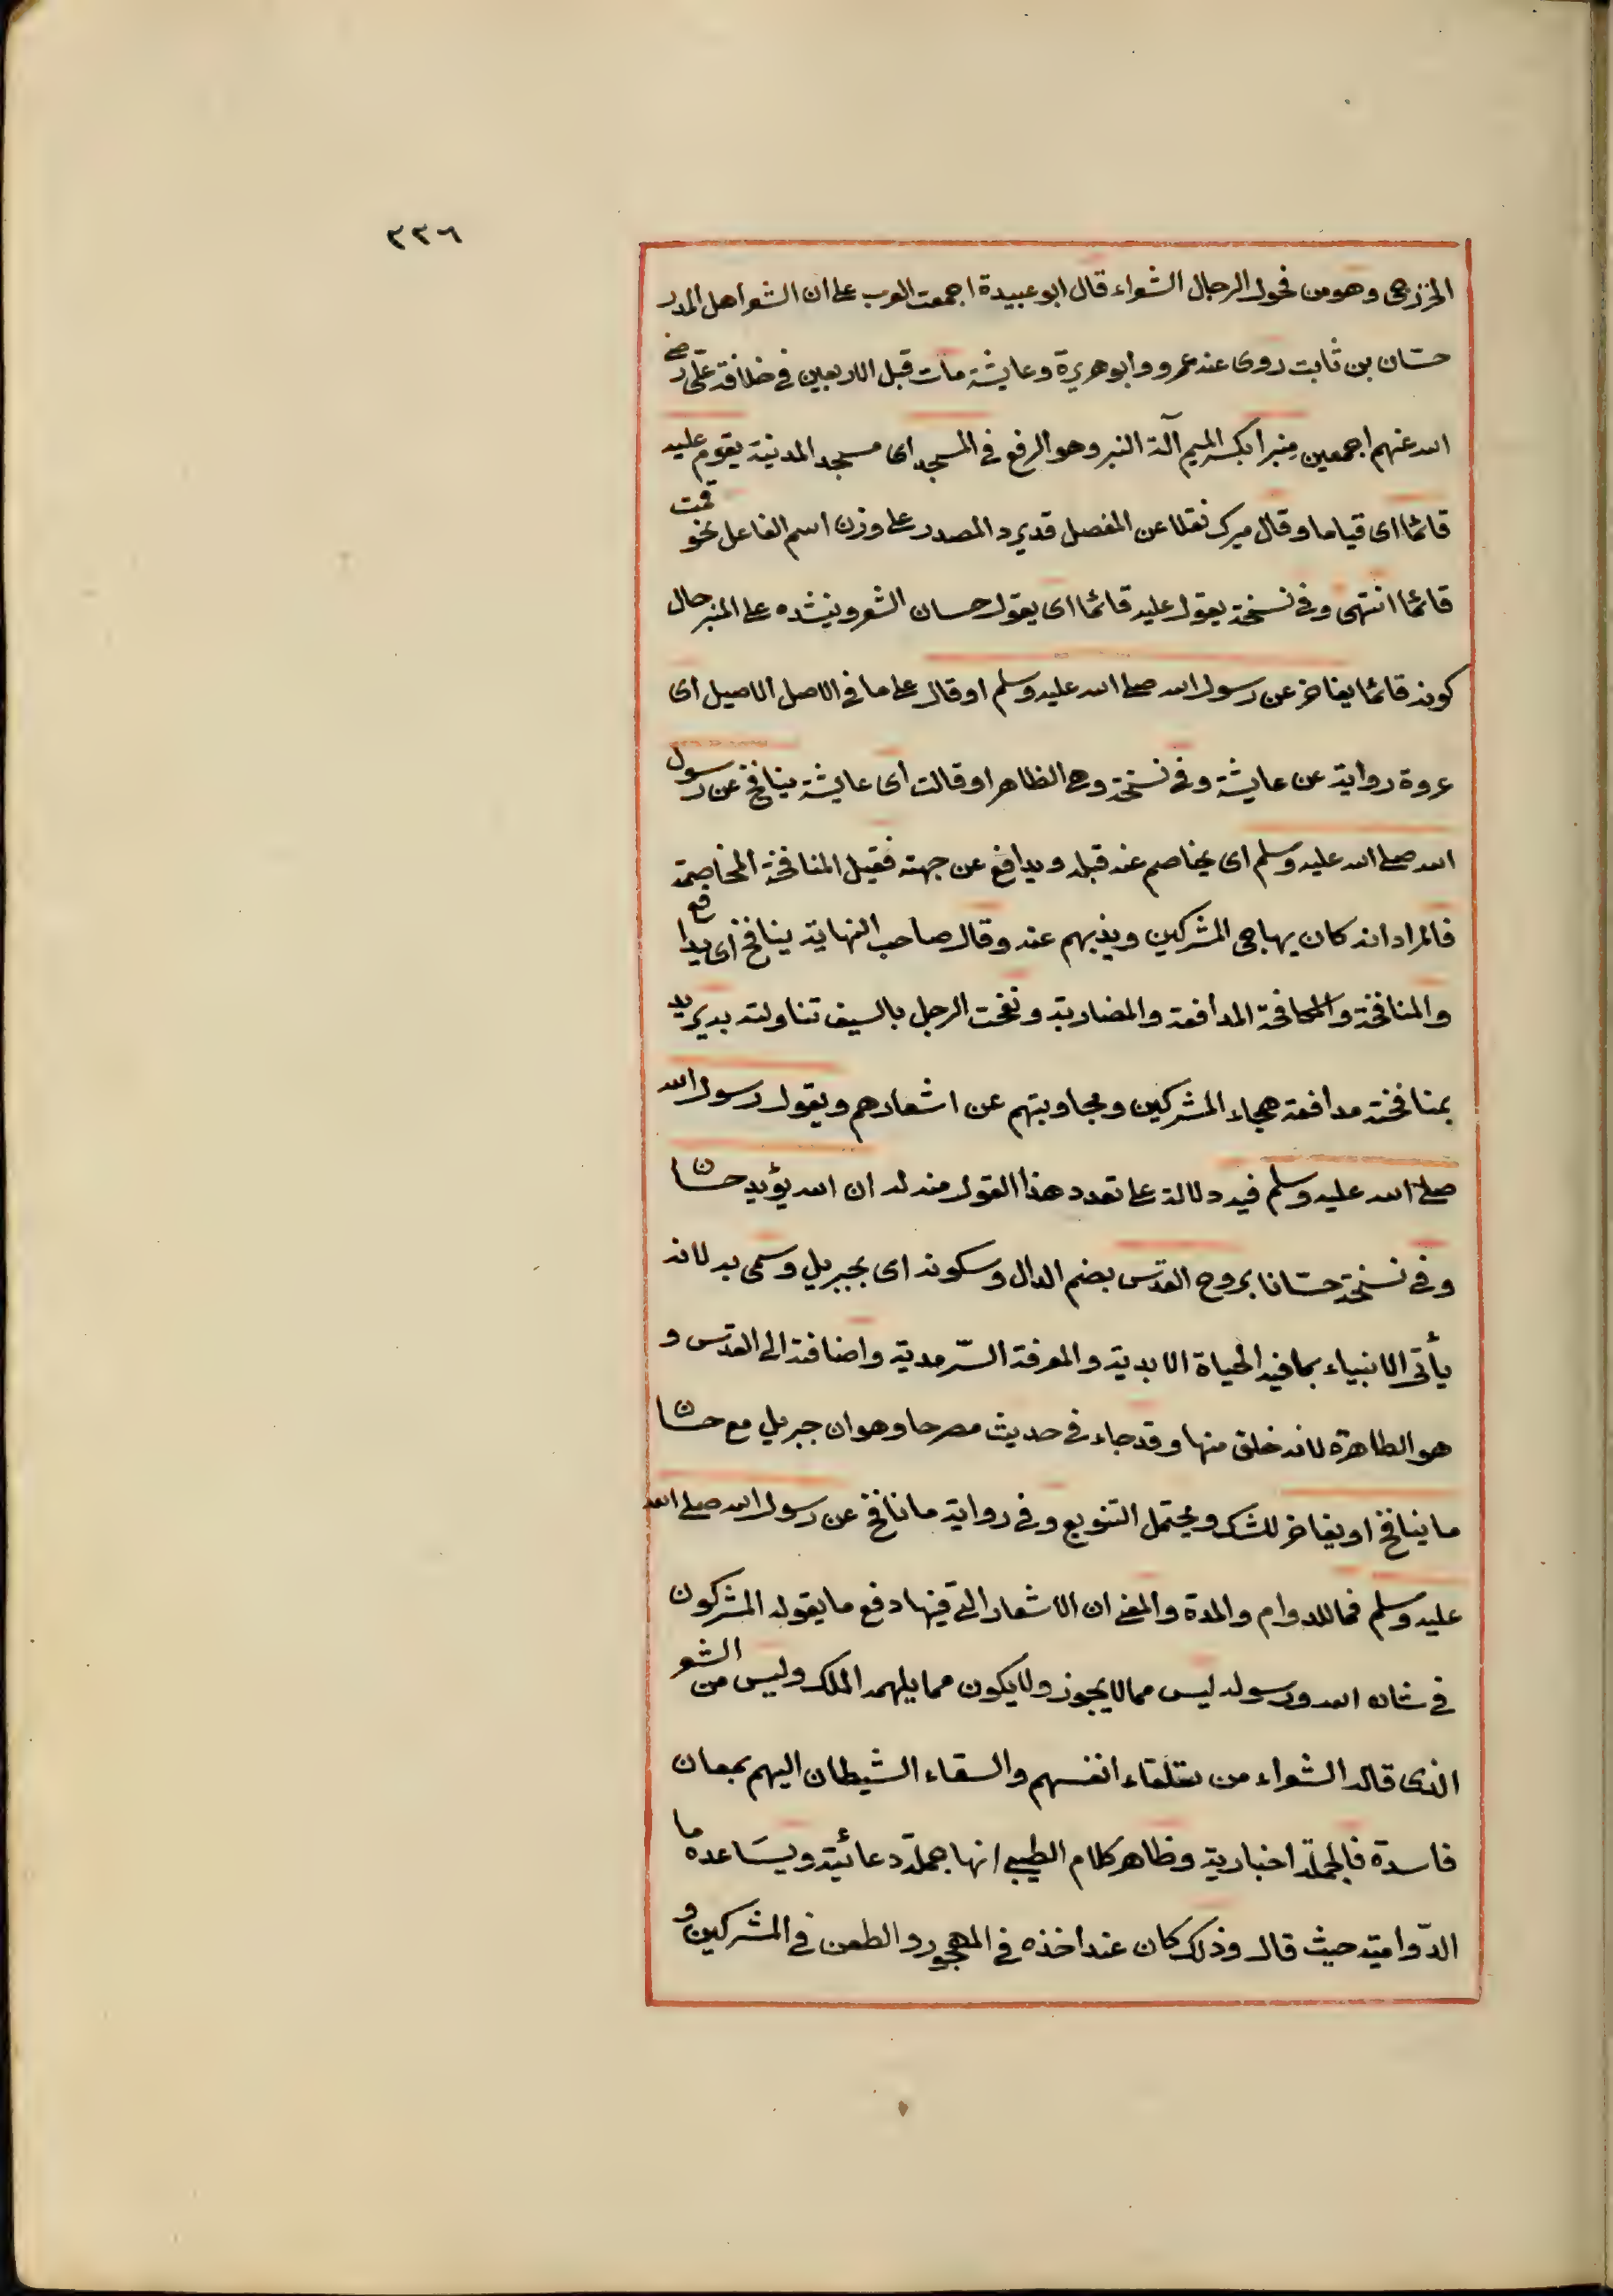 ٢٣٦
الخزرجى وهو من فحول الرجال الشعراء قال ابو عبيدة اجمعت العرب على ان الشعر اهل المدر
حسّان بن ثابت روى عنه عمرو وابو هريرة وعايشة مات قبل الاربعين فى خلافة علىّ رضى
الله عنهم اجمعين مِنبرا بكسر الميم آلة النبر وهو الرفع فى المسجد اى مسجد المدينة يقوم عليه
قائمًا اى قياما وقال ميرك نقلا عن المفصل قد يرد المصدر على وزن اسم الفاعل نحو قمت
قائمًا انتهى وفى نسخة يقول عليه قائمًا اى يقول حسان الشعر وينشده على المنبر حال
كونه قائمًا يفاخر عن رسول الله صلى الله عليه وسلم او قال على ما فى الاصل الاصيل اى
عروة رواية عن عايشة وفى نسخة وهى الظاهر او قالت اى عايشة ينافح عن رسول
الله صلى الله عليه وسلم اى يخاصم عنه قبله ويدافع عن جهته فقيل المنافحة المخاصمة
فالمراد انه كان يهاجى المشركين ويذبهم عنه وقال صاحب النهاية ينافح اى يدافع
والمنافحة والمكافحة المدافعة والمضاربة ونفحت الرجل بالسيف تناولته به يريد
بمنافحته مدافعة هجاء المشركين ومجاوبتهم عن اشعارهم ويقول رسول الله
صلى الله عليه وسلم فيه دلالة على تعدد هذا القول منه له ان الله يؤيد حسان
وفى نسخة حسّانا بروح القدس بضم الدال وسكونه اى بجبريل وسمى به لانه
يأتى الانبياء بما فيه الحياة الابدية والمعرفة السّرمدية واضافته الى القدس و
هو الطاهرة لانه خلق منها وقد جاء فى حديث مصرحا وهو ان جبريل مع حسان
ما ينافح او يفاخر للشك ويحتمل التنويع وفى رواية ما نافح عن رسول الله صلى الله
عليه وسلم فما للدوام والمدة والمعنى ان الاشعار التى فيها دفع ما يقوله المشركون
فى شان الله ورسوله ليس مما لا يجوز ولا يكون مما يلهمه الملك وليس من الشعر
الذى قاله الشعراء من تلقاء انفسهم والقاء الشيطان اليهم بمعان
فاسدة فالجملة اخبارية وظاهر كلام الطيبى انها جملة دعائية ويسَاعده ما
الدّوامية حيث قال وذلك كان عند اخذه فى الهجو والطعن فى المشركين و